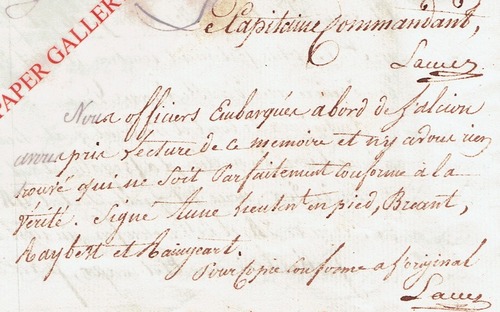 PAPER GALLER
Le Capitaine Commandant,
Nous officiers Embarqués a bord de l'alcion
avons pris lecture de ce memoire et n'y avons rien
trouvé qui ne soit Parfaitement Conforme à la
Vérité. Signé lieutnt en pied, Breant,
et
Pour Copie Conforme a l'original